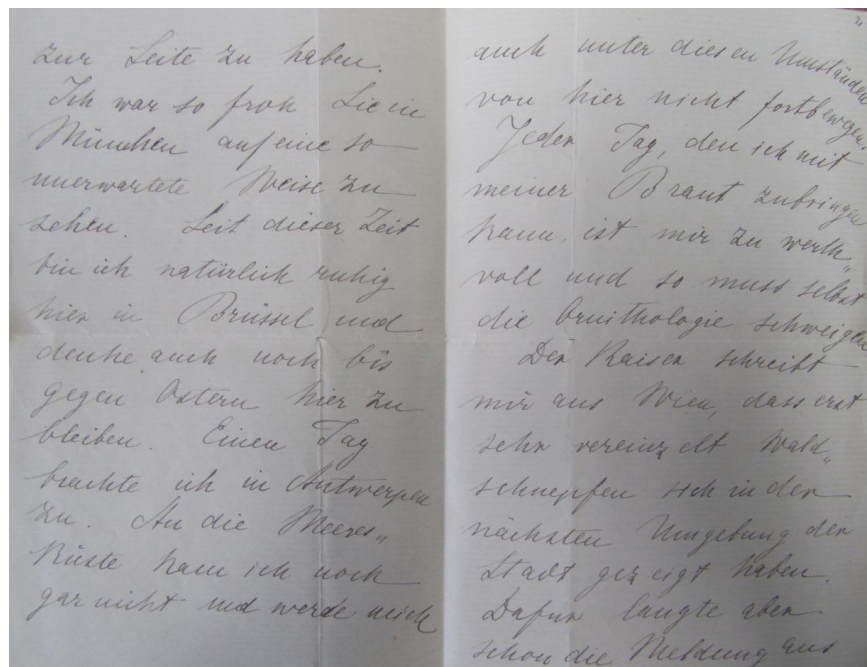 zur Seite zu haben.
Ich war so froh Sie in
München auf eine so
unerwartete Weise zu
sehen. Seit dieser Zeit
bin ich natürlich ruhig
hier in Brüssel und
denke auch noch bis
gegen Ostern hier zu
bleiben. Einen Tag
brachte ich in Antwerpen
zu. An die Meeres„
küste kam ich noch
gar nicht und werde mich
auch unter diesen Umständen
von hier nicht fortbewegen.
Jeder Tag, den ich mit
meiner Braut zubringen
kann, ist mir zu werth„
voll und so muss selbst
die Ornithologie schweigen
Der Kaiser schreibt
mir aus Wien, dass erst
sehr vereinzelt Wald„
schnepfen sich in der
nächsten Umgebung der
Stadt gezeigt haben.
Dafür langte aber
schon die Meldung aus